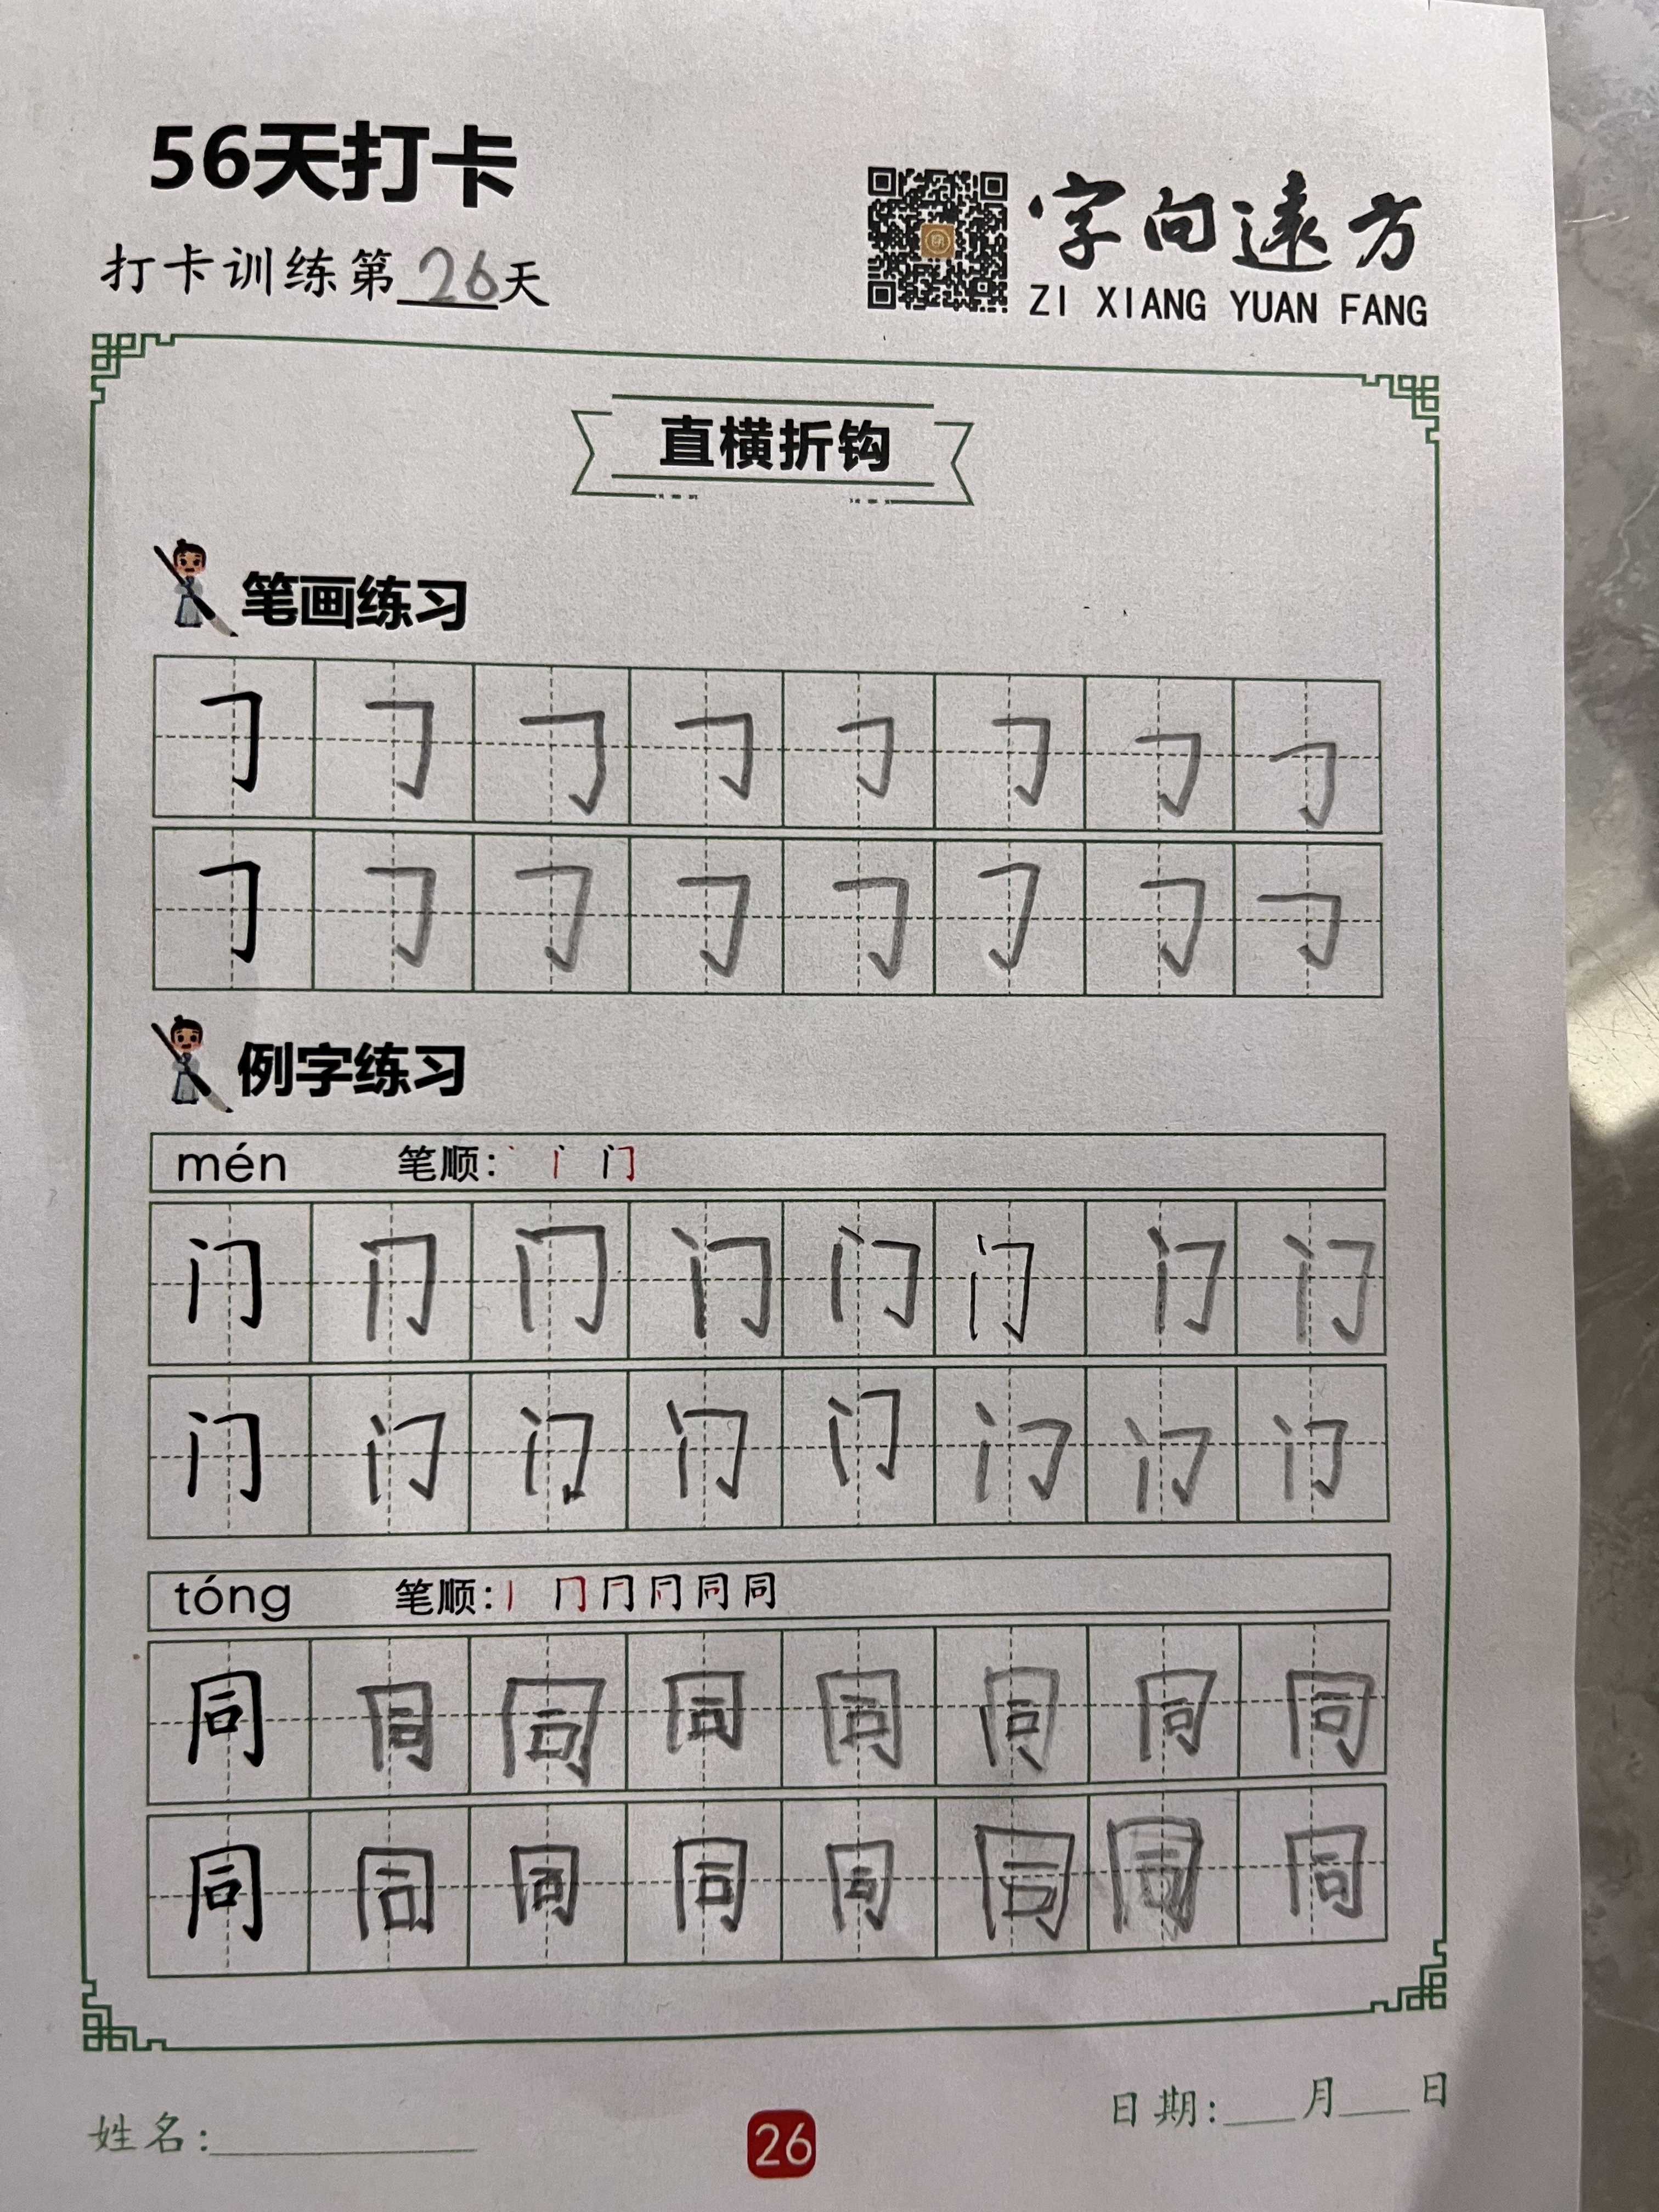 56天打卡
打卡训练第26天
字向远方
ZI XIANG YUAN FANG
直横折钩
笔画练习
𠃌 𠃌 𠃌 𠃌 𠃌 𠃌 𠃌 𠃌
𠃌 𠃌 𠃌 𠃌 𠃌 𠃌 𠃌 𠃌
例字练习
mén 笔顺: 丶 丨 门
门 门 门 门 门 门 门 门
门 门 门 门 门 门 门 门
tóng 笔顺: 丨 冂 同 同
同 同 同 同 同 同 同 同
同 同 同 同 同 同 同 同
姓名:
26
日期: 月 日